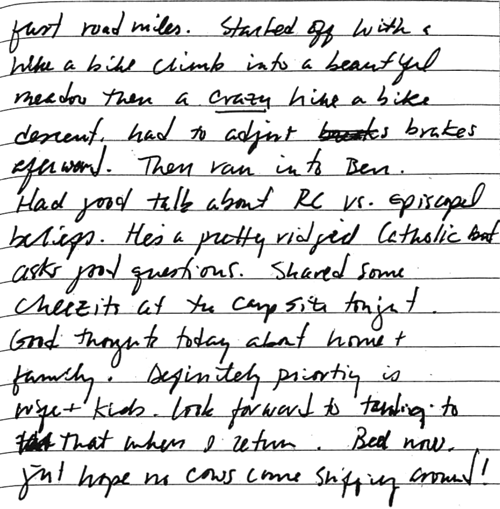 fast road miles. Started off with a
hike a bike climb into a beautiful
meadow then a crazy hike a bike
descent. had to adjust breaks brakes
afterward. Then ran into Ben.
Had good talk about RC vs. Episcopal
beliefs. He's a pretty ridged Catholic but
asks good questions. Shared some
Cheezits at the camp site tonight.
Good thoughts today about home +
family. Definitely priority is
wife + kids. Look forward to tending to
that when I return. Bed now.
Just hope no cows come sniffing around!